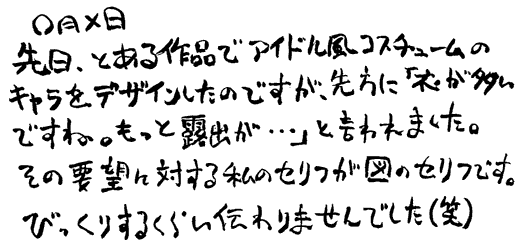 〇月×日
先日、とある作品でアイドル風コスチュームの
キャラをデザインしたのですが、先方に「衣が多い
ですね。もっと露出が…」と言われました。
その要望に対する私のセリフが図のセリフです。
びっくりするくらい伝わりませんでした(笑)